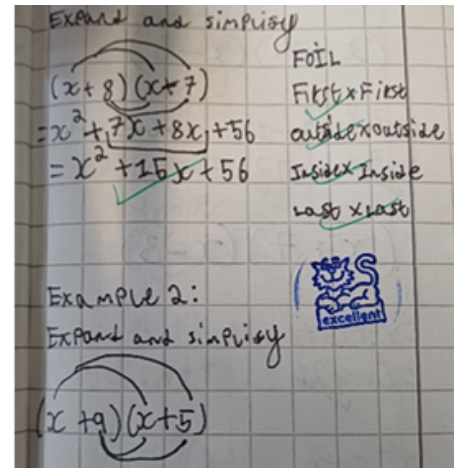 Expand and simplisy
(x+8)(x+7)
=x²+7x+8x+56
=x²+15x+56
FOIL
First x First
outside x outside
Inside x Inside
Last x Last
excellent
Example 2:
Expand and simplisy
(x+9)(x+5)